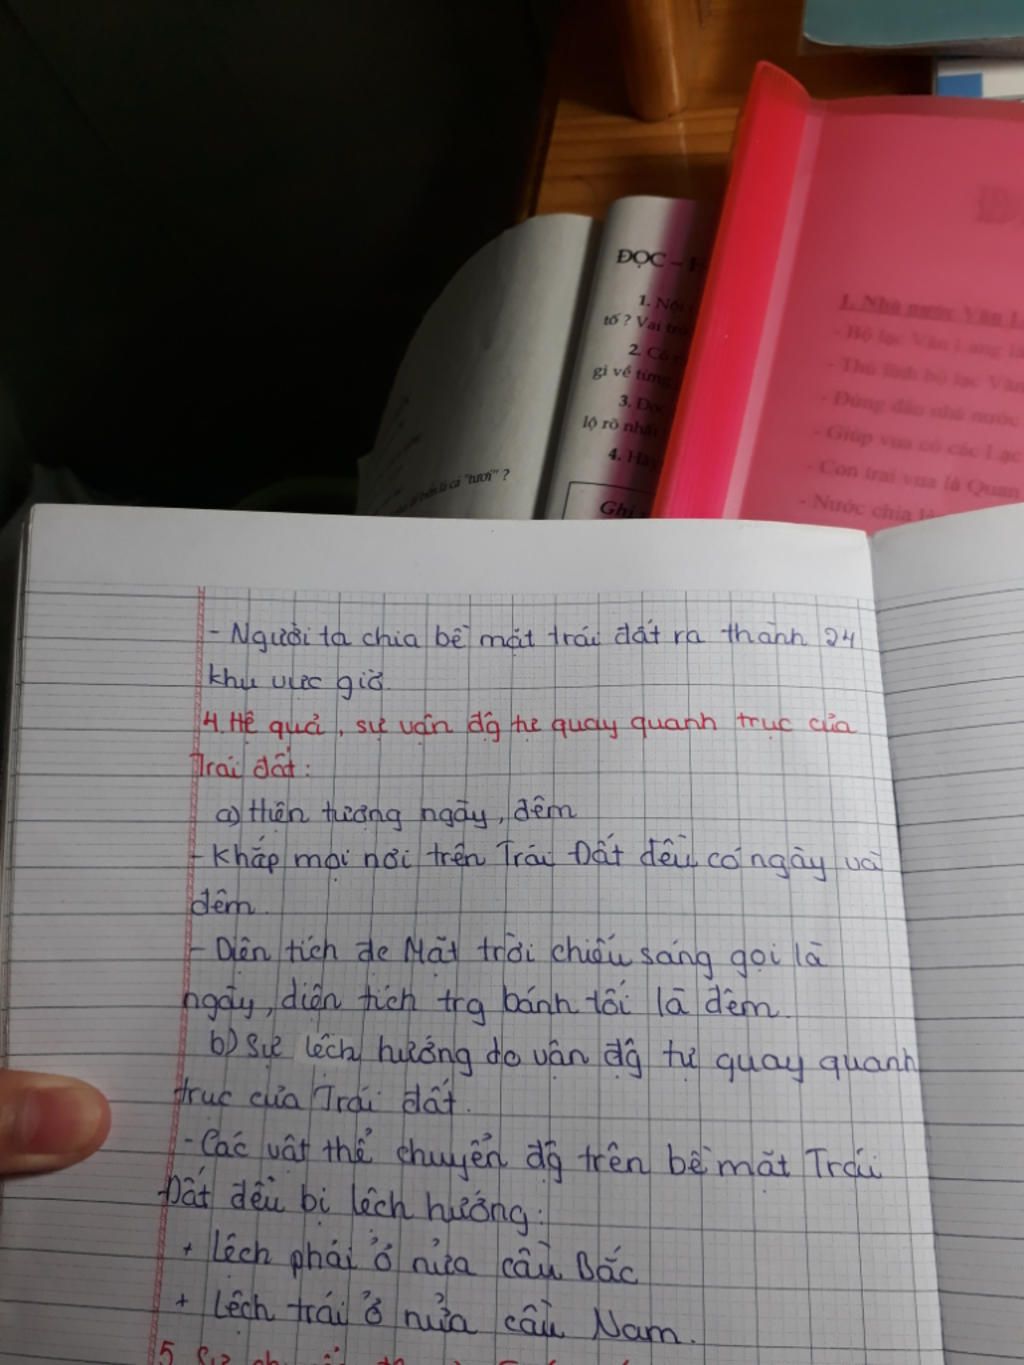 ĐỌC -
1. Nội
tố ? Vai trò
2. Có
gì về từng
3. Đọc
lộ rõ nhất
4. Hãy
Ghi
là cá "tươi" ?
1. Nhà nước Văn L
- Bộ lạc Văn Lang
- Thủ lĩnh bộ lạc Văn
- Đứng đầu nhà nước
- Giúp vua có các Lạc
- Con trai vua là Quan
- Nước chia
- Người ta chia bề mặt trái đất ra thành 24
khu vực giờ.
4. Hệ quả, sự vận độg tự quay quanh trục của
Trái đất:
a) Hiện tượng ngày, đêm
- Khắp mọi nơi trên Trái Đất đều có ngày và
đêm.
- Diện tích đc Mặt trời chiếu sáng gọi là
ngày, diện tích trg bánh tối là đêm.
b) Sự lệch hướng do vận độg tự quay quanh
trục của Trái đất.
- Các vật thể chuyển độg trên bề mặt Trái
Đất đều bị lệch hướng:
+ Lệch phải ở nửa cầu Bắc
+ Lệch trái ở nửa cầu Nam.
5. Sự